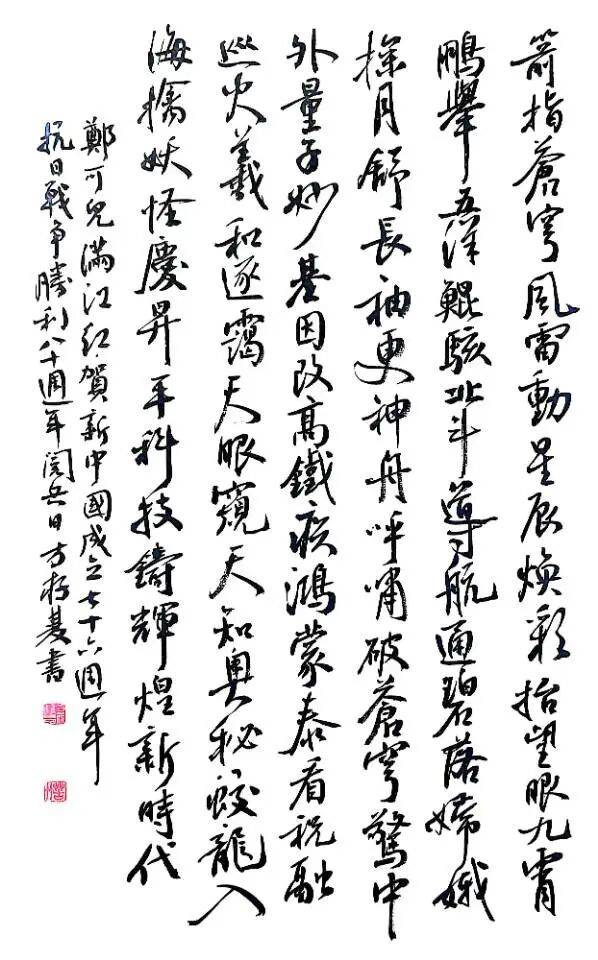 箭指蒼穹風雷動星辰煥彩抬望眼九霄
鵬舉五洋鯤駭北斗導航通碧落嫦娥
探月舒長袖更神舟呼嘯破蒼穹驚中
外量子妙基因改高鐵疾鴻蒙泰看祝融
巡火羲和逐靄天眼窺天知奧秘蛟龍入
海擒妖怪慶昇平科技鑄輝煌新時代
鄭可兒滿江紅賀新中國成立七十六週年
抗日戰爭勝利八十週年閱兵日方書